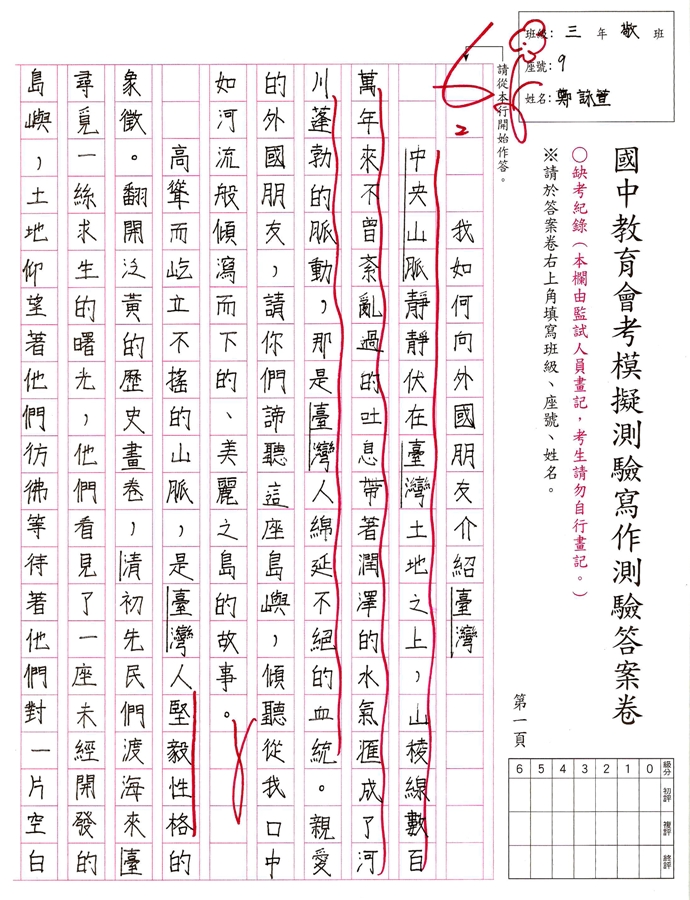 班級：三年敬班
座號：9
姓名：鄭詠萱
國中教育會考模擬測驗寫作測驗答案卷
○缺考紀錄（本欄由監試人員畫記，考生請勿自行畫記。）
※請於答案卷右上角填寫班級、座號、姓名。
第一頁
請從本行開始作答。
6
2
我如何向外國朋友介紹臺灣
中央山脈靜靜伏在臺灣土地之上，山稜線數百
萬年來不曾紊亂過的吐息帶著潤澤的水氣匯成了河
川蓬勃的脈動，那是臺灣人綿延不絕的血統。親愛
的外國朋友，請你們諦聽這座島嶼，傾聽從我口中
如河流般傾瀉而下的、美麗之島的故事。
高聳而屹立不搖的山脈，是臺灣人堅毅性格的
象徵。翻開泛黃的歷史畫卷，清初先民們渡海來臺
尋覓一絲求生的曙光，他們看見了一座未經開發的
島嶼，土地仰望著他們彷彿等待著他們對一片空白
6 5 4 3 2 1 0 級分
初評
複評
終評